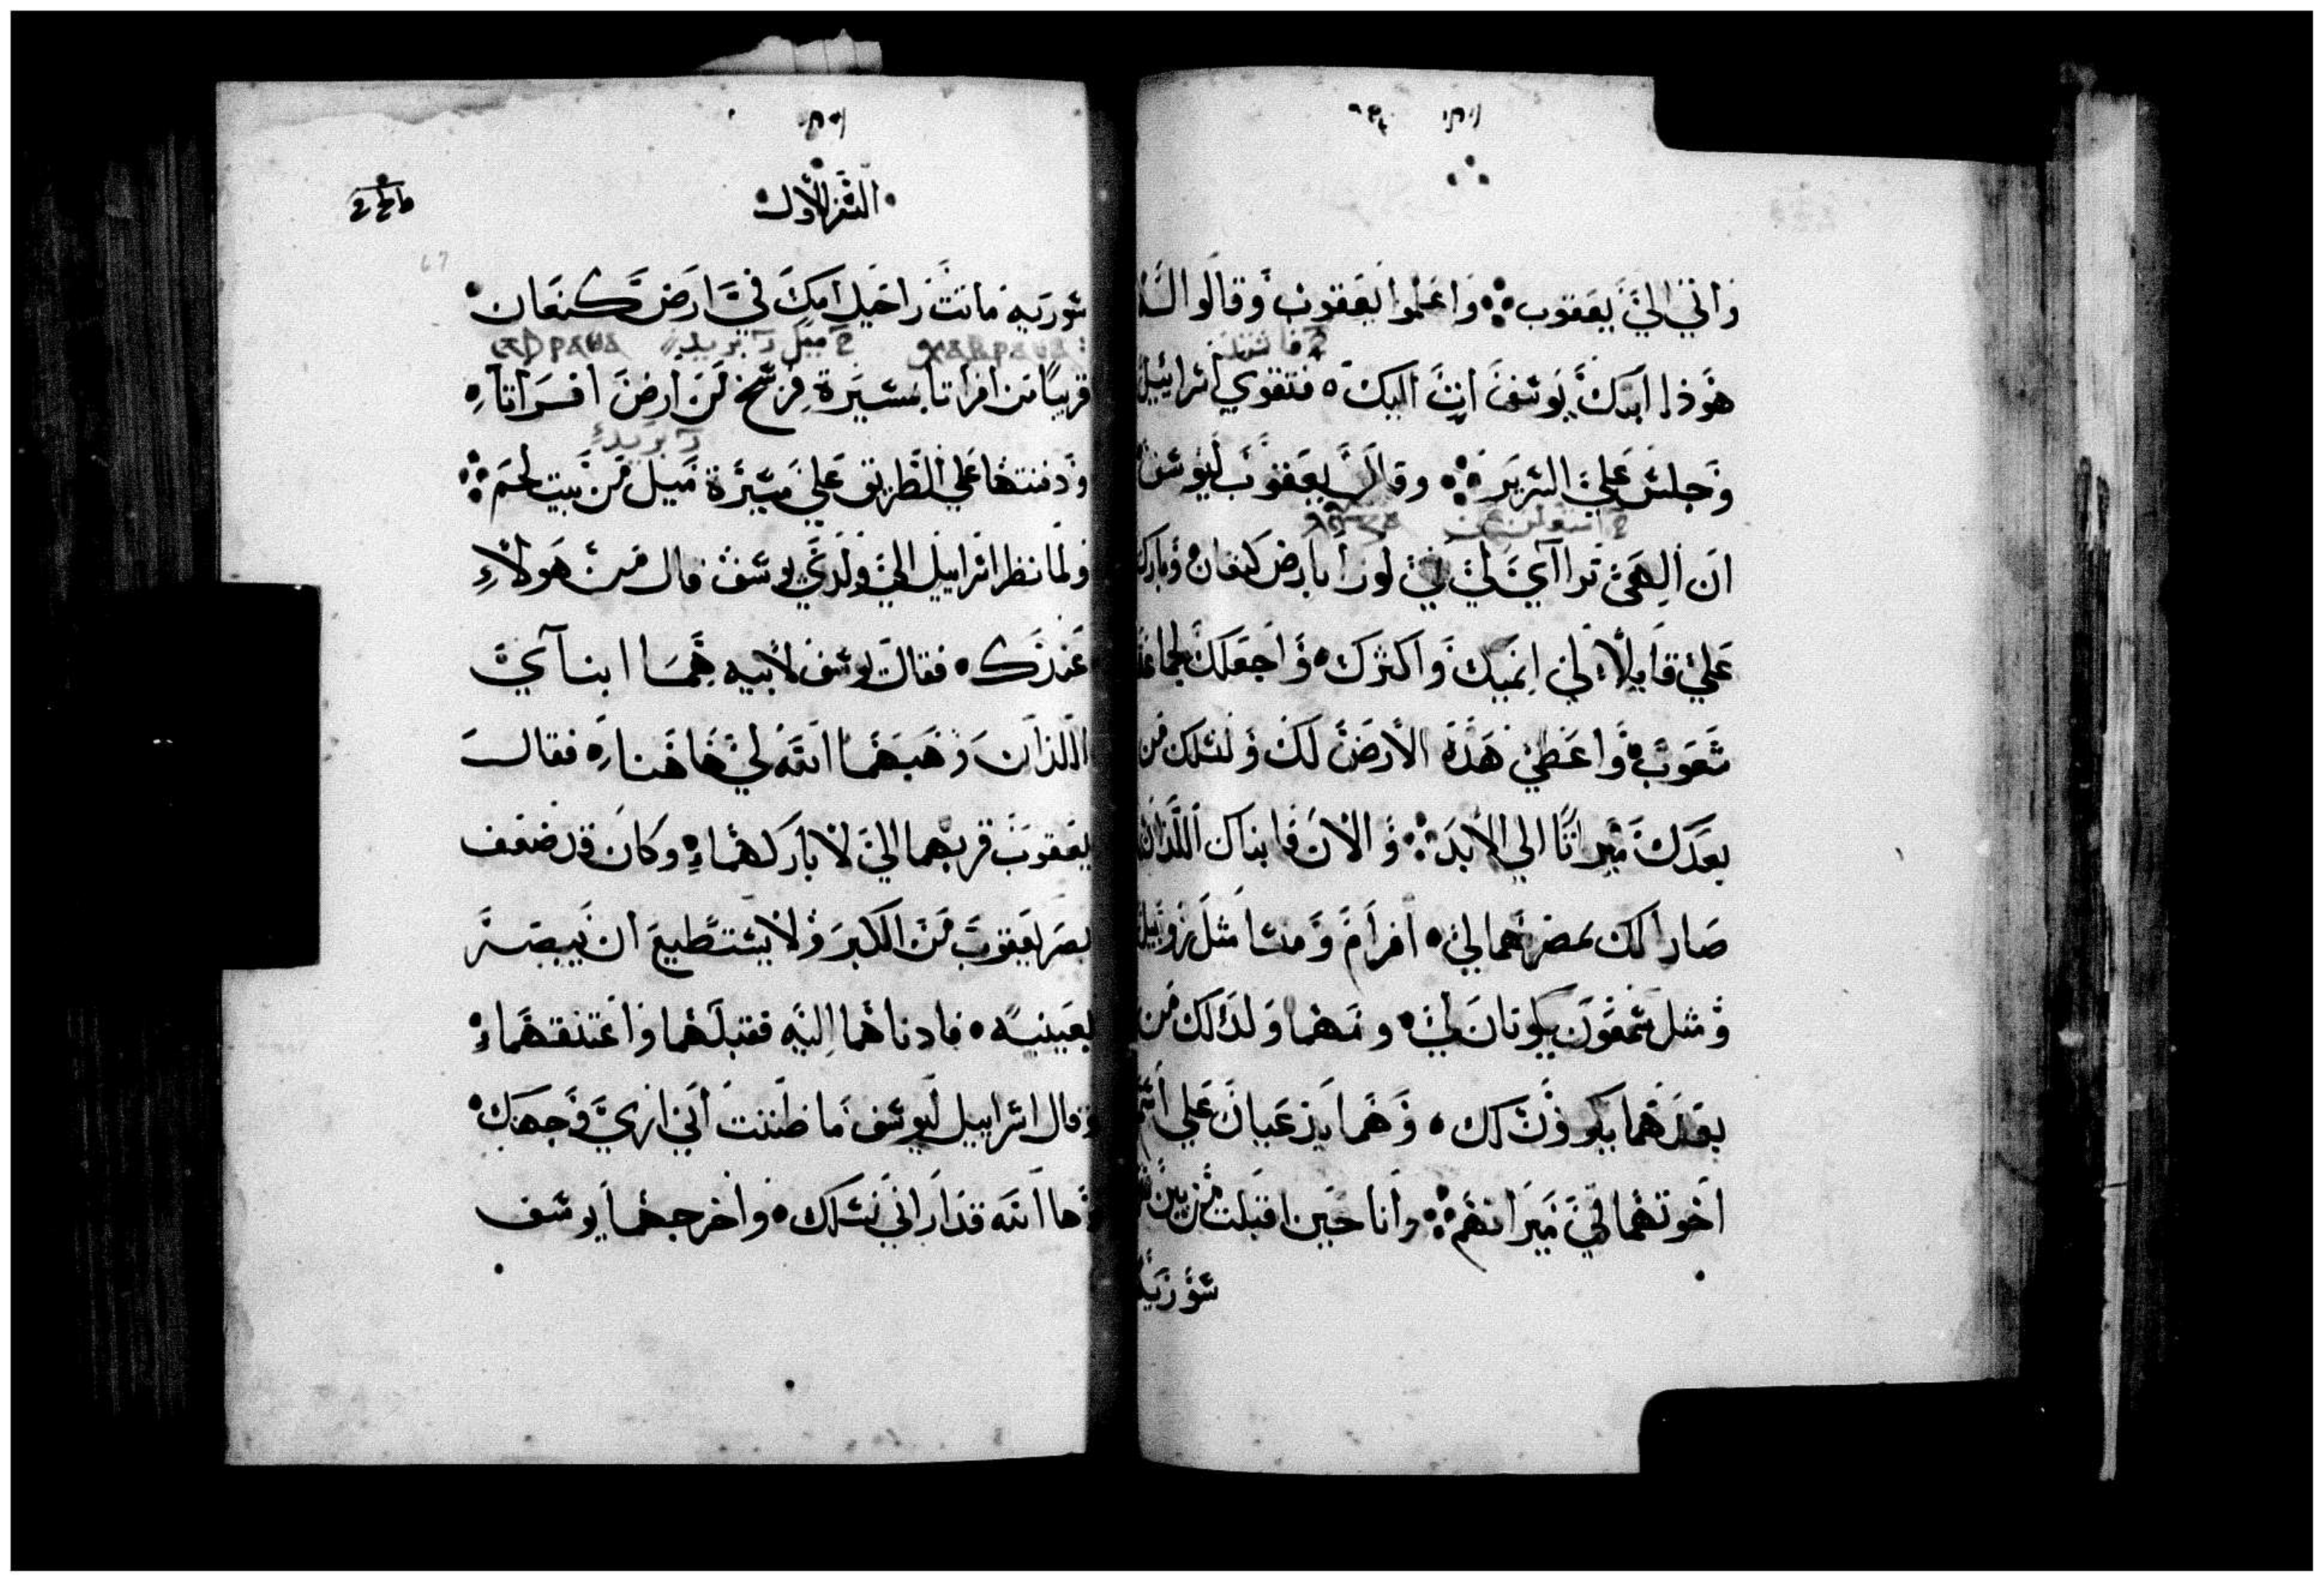 واتي الي يعقوب ⁘ واعلموا يعقوب وقالوا له
هوذا ابنك يوسف اتٍ اليك ٠ فتقوي اسراييل
وجلس علي السرير ⁘ وقال يعقوب ليوسف
ان الهي تراآي لي في لوزا بارض كنعان وباركني
علي قايلاً اني انميك واكثرك ٠ واجعلك لجماعة
شعوب ٠ واعطي هذه الارض لك ولنسلك من
بعدك ميراثاً الي الابد ⁘ والان فابناك اللذان
صارا لك بمصر هما لي ٠ افرام ومنسا مثل روبيل
ومثل شمعون يكونان لي ٠ ومهما ولد لك من
بعدهما يكون لك ٠ وهما يدعيان علي اسم
اخوتهما في ميراثهم ⁘ وانا حين اقبلت من بين
سورية
السفر الاول
67
سورية ماتت راحيل امك في ارض كنعان ٠
قريباً من افراتا مسيرة فرسخ من ارض افراتا ٠
ودفنتها علي الطريق علي مسيرة ميل من بيت لحم ⁘
ولما نظر اسراييل الي ولدي يوسف قال من هولاء
عندك ٠ فقال يوسف لابيه هما ابنآي
اللذان وهبهما الله لي هاهنا ٠ فقال
يعقوب قربهما الي لاباركهما ٠ وكان قد ضعف
بصر يعقوب من الكبر ولا يستطيع ان يبصر
بعينيه ٠ فادناهما اليه فقبلهما واعتنقهما ٠
وقال اسراييل ليوسف ما ظننت اني اري وجهك ٠
وها الله قد اراني نسلك ٠ واخرجهما يوسف